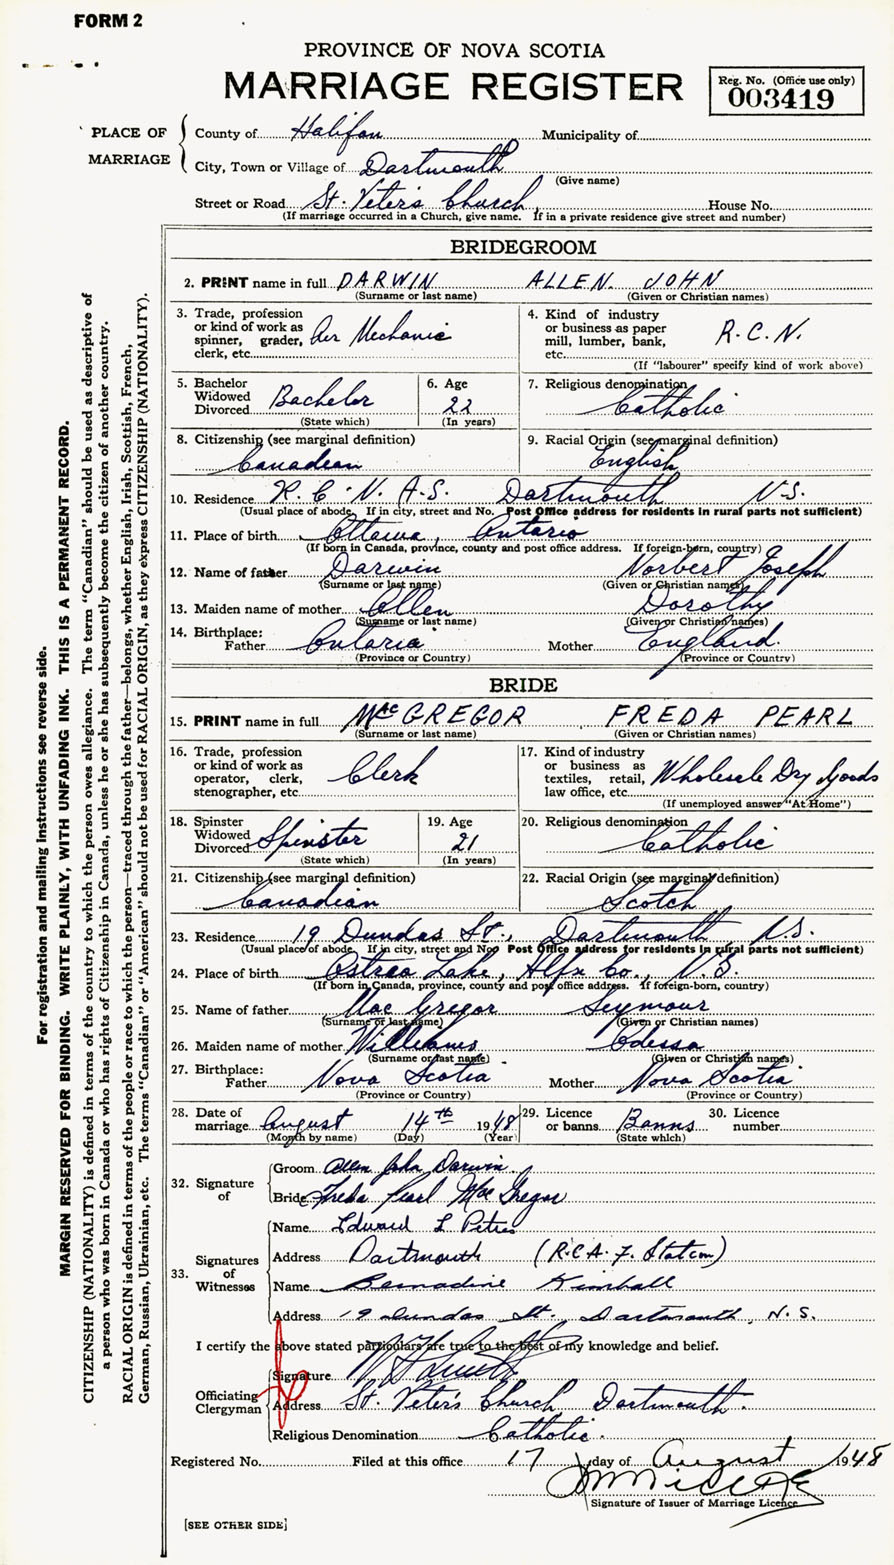 FORM 2
PROVINCE OF NOVA SCOTIA
MARRIAGE REGISTER
Reg. No. (Office use only)
003419
PLACE OF MARRIAGE
County of Halifax Municipality of
City, Town or Village of Dartmouth
(Give name)
Street or Road St. Peter's Church House No.
(If marriage occurred in a Church, give name. If in a private residence give street and number)
BRIDEGROOM
2. PRINT name in full DARWIN ALLEN JOHN
(Surname or last name) (Given or Christian names)
3. Trade, profession or kind of work as spinner, grader, clerk, etc. Aer Mechanic
4. Kind of industry or business as paper mill, lumber, bank, etc. R.C.N.
(If "labourer" specify kind of work above)
5. Bachelor Widowed Divorced Bachelor
(State which)
6. Age 22
(In years)
7. Religious denomination Catholic
8. Citizenship (see marginal definition) Canadian
9. Racial Origin (see marginal definition) English
10. Residence R.C.N.A.S. Dartmouth N.S.
(Usual place of abode. If in city, street and No. Post Office address for residents in rural parts not sufficient)
11. Place of birth Ottawa, Ontario
(If born in Canada, province, county and post office address. If foreign-born, country)
12. Name of father Darwin Norbert Joseph
(Surname or last name) (Given or Christian names)
13. Maiden name of mother Allen Dorothy
(Surname or last name) (Given or Christian names)
14. Birthplace:
Father Ontario Mother England
(Province or Country) (Province or Country)
BRIDE
15. PRINT name in full MacGREGOR, FREDA PEARL
(Surname or last name) (Given or Christian names)
16. Trade, profession or kind of work as operator, clerk, stenographer, etc. Clerk
17. Kind of industry or business as textiles, retail, law office, etc. Wholesale Dry Goods
(If unemployed answer "At Home")
18. Spinster Widowed Divorced Spinster
(State which)
19. Age 21
(In years)
20. Religious denomination Catholic
21. Citizenship (see marginal definition) Canadian
22. Racial Origin (see marginal definition) Scotch
23. Residence 19 Dundas St., Dartmouth N.S.
(Usual place of abode. If in city, street and No. Post Office address for residents in rural parts not sufficient)
24. Place of birth Ostrea Lake, Hlfx Co., N.S.
(If born in Canada, province, county and post office address. If foreign-born, country)
25. Name of father Mac Gregor Seymour
(Surname or last name) (Given or Christian names)
26. Maiden name of mother Williams Odessa
(Surname or last name) (Given or Christian names)
27. Birthplace:
Father Nova Scotia Mother Nova Scotia
(Province or Country) (Province or Country)
28. Date of marriage August 14th 1948
(Month by name) (Day) (Year)
29. Licence or banns Banns
(State which)
30. Licence number
32. Signature of
Groom Allen John Darwin
Bride Freda Pearl MacGregor
33. Signatures of Witnesses
Name Edward L Petrie
Address Dartmouth (R.C.A.F. Station)
Name Bernadine Kimball
Address 19 Dundas St. Dartmouth, N.S.
I certify the above stated particulars are true to the best of my knowledge and belief.
Officiating Clergyman
Signature
Address St. Peter's Church Dartmouth.
Religious Denomination Catholic.
Registered No. Filed at this office 17 day of August 1948
Signature of Issuer of Marriage Licence
[SEE OTHER SIDE]
For registration and mailing instructions see reverse side.
MARGIN RESERVED FOR BINDING. WRITE PLAINLY, WITH UNFADING INK. THIS IS A PERMANENT RECORD.
CITIZENSHIP (NATIONALITY) is defined in terms of the country to which the person owes allegiance. The term "Canadian" should be used as descriptive of
a person who was born in Canada or who has rights of Citizenship in Canada, unless he or she has subsequently become the citizen of another country.
RACIAL ORIGIN is defined in terms of the people or race to which the person—traced through the father—belongs, whether English, Irish, Scottish, French,
German, Russian, Ukrainian, etc. The terms "Canadian" or "American" should not be used for RACIAL ORIGIN, as they express CITIZENSHIP (NATIONALITY).